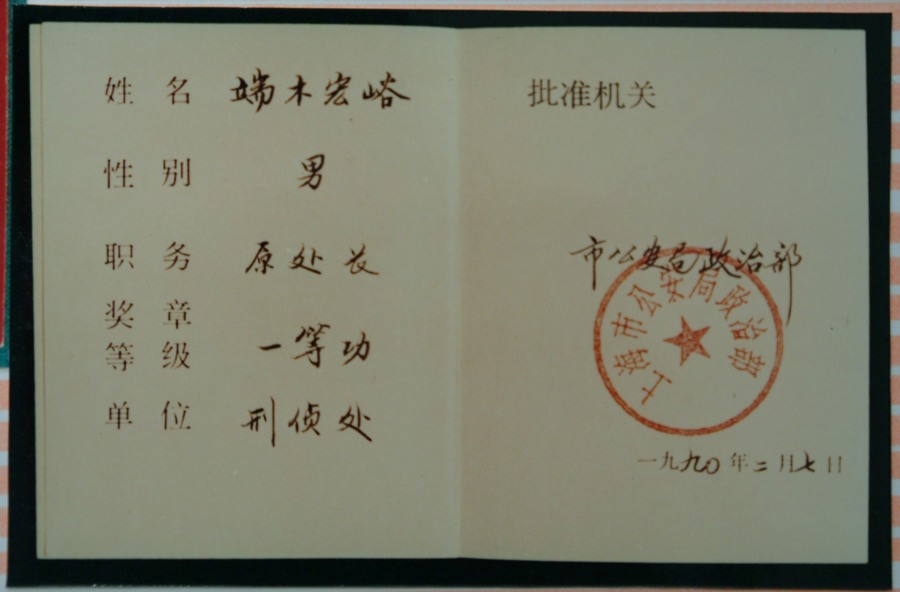 姓名 端木宏峪
性别 男
职务 原处长
奖章
等级 一等功
单位 刑侦处
批准机关
市公安局政治部
上海市公安局政治部
一九九〇年二月七日